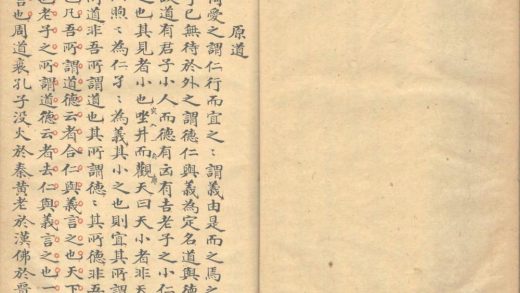 原道
愛之謂仁行而宜之〻謂義由是而之焉之
乎已無待於外之謂德仁與義為定名道與德
故道有君子小人而德有凶有吉老子之小仁
之也其見者小也坐井而觀天曰天小者非天
煦〻為仁孑〻為義其小之也則宜其所謂
所道非吾所謂道也其所謂德〻其所德非吾
也凡吾所謂道德云者合仁與義言之也天下
也老子之所謂道德云者去仁與義言之也一
言也周道衰孔子没火於秦黃老於漢佛於晉